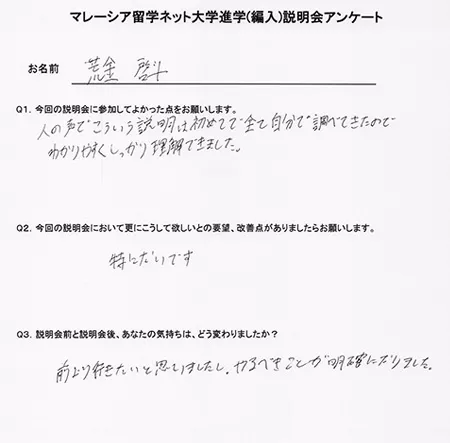 マレーシア留学ネット大学進学(編入)説明会アンケート
お名前 荒金 啓斗
Q1. 今回の説明会に参加してよかった点をお願いします。
人の声でこういう説明は初めてで全て自分で調べてきたので
わかりやすくしっかり理解できました。
Q2. 今回の説明会において更にこうして欲しいとの要望、改善点がありましたらお願いします。
特にないです
Q3. 説明会前と説明会後、あなたの気持ちは、どう変わりましたか？
前より行きたいと思いましたし、やるべきことが明確になりました。